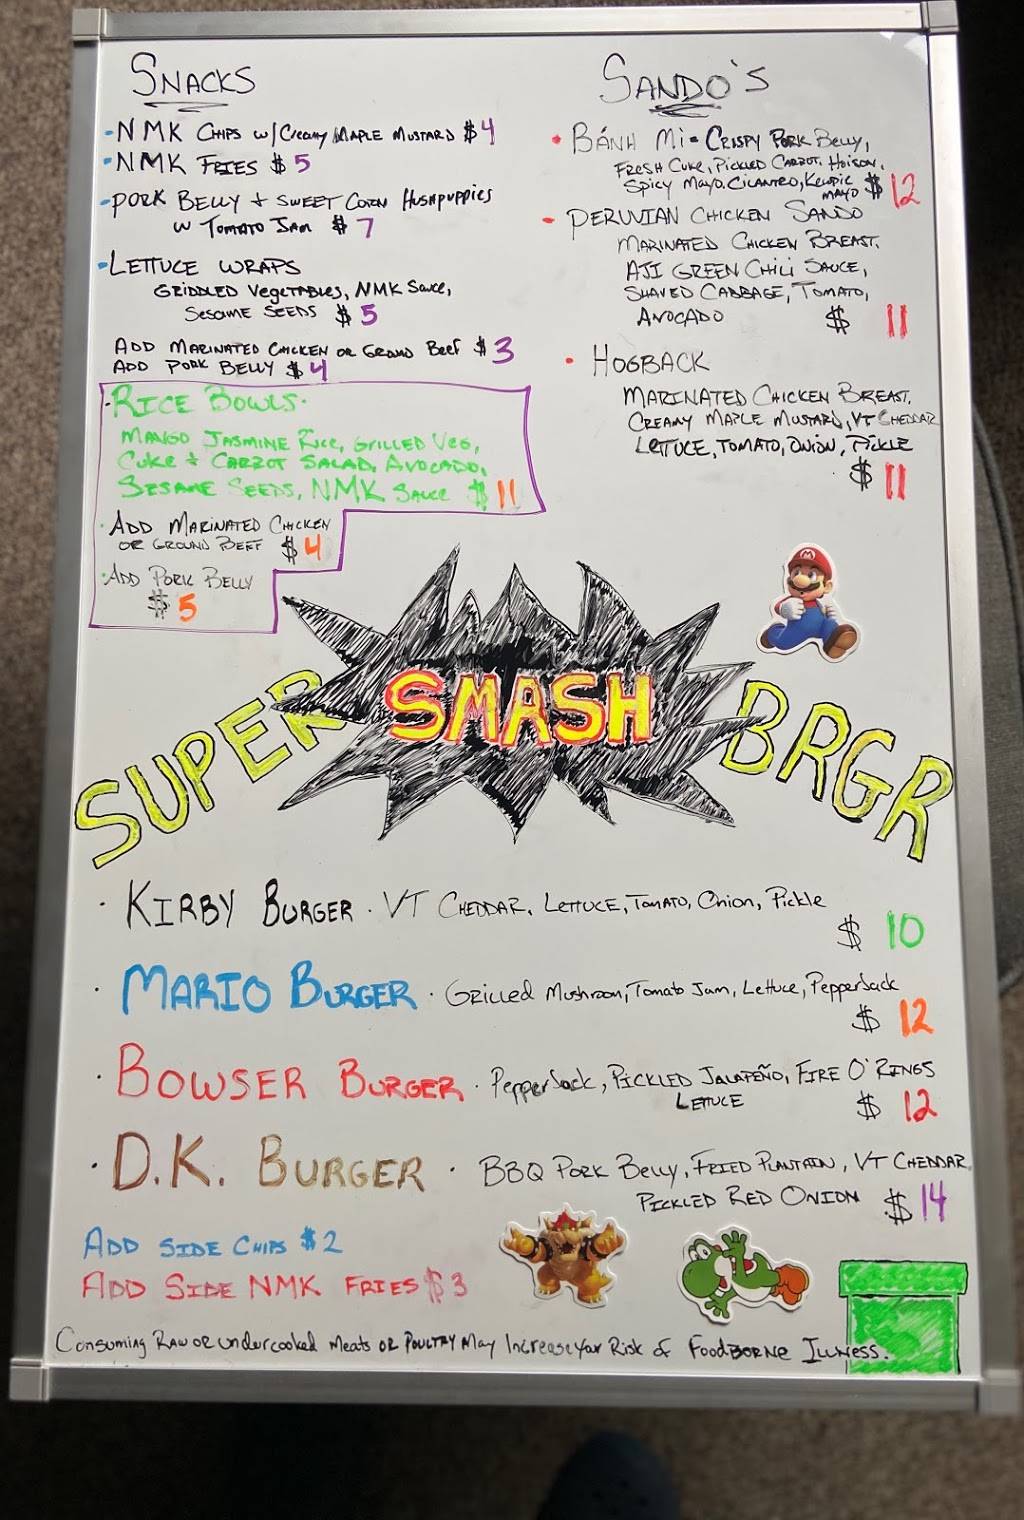 SNACKS
- NMK CHIPS W/Creamy MAPLE MUSTARD $4
- NMK FRIES $5
- PORK BELLY + SWEET CORN HUSHPUPPIES
W TOMATO JAM $7
- LETTUCE WRAPS
GRIDDLED VegeTABLES, NMK SAUCE,
SESAME SEEDS $5
ADD MARINATED CHICKEN OR GROUND BEEF $3
ADD PORK BELLY $4
· RICE BOWLS·
MANGO JASMINE RICE, GRILLED VEG,
CUKE + CARROT SALAD, AVOCADO,
SESAME SEEDS, NMK SAUCE $11
· ADD MARINATED CHICKEN
OR GROUND BEEF $4
· ADD PORK BELLY
$5
SANDO'S
• BÁNH MI - CRISPY PORK BELLY,
FRESH CUKE, PICKLED CARROT, HOISON,
SPICY MAYO, CILANTRO, KEWPIE
MAYO $12
- PERUVIAN CHICKEN SANDO
MARINATED CHICKEN BREAST,
AJI GREEN CHILI SAUCE,
SHAVED CABBAGE, TOMATO,
AVOCADO $11
• HOGBACK
MARINATED CHICKEN BREAST,
CREAMY MAPLE MUSTARD, VT CHEDDAR
LETTUCE, TOMATO, ONION, PICKLE
$11
M
SUPER SMASH BRGR
· KIRBY BURGER · VT CHEDDAR, LETTUCE, TOMATO, Onion, Pickle
$10
· MARIO BURGER · Grilled Mushroom, Tomato Jam, Lettuce, PepperJack
$12
· BOWSER BURGER · PepperJack, PICKLED JALAPEÑO, FIRE O'RINGS
LETTUCE $12
· D.K. BURGER · BBQ PORK BELLY, FRIED PLANTAIN, VT CHEDDAR,
PICKLED RED ONION $14
ADD SIDE CHIPS $2
ADD SIDE NMK FRIES $3
Consuming RAW OR Undercooked Meats OR POULTRY May Increase Your Risk of FOODBORNE ILLNESS.